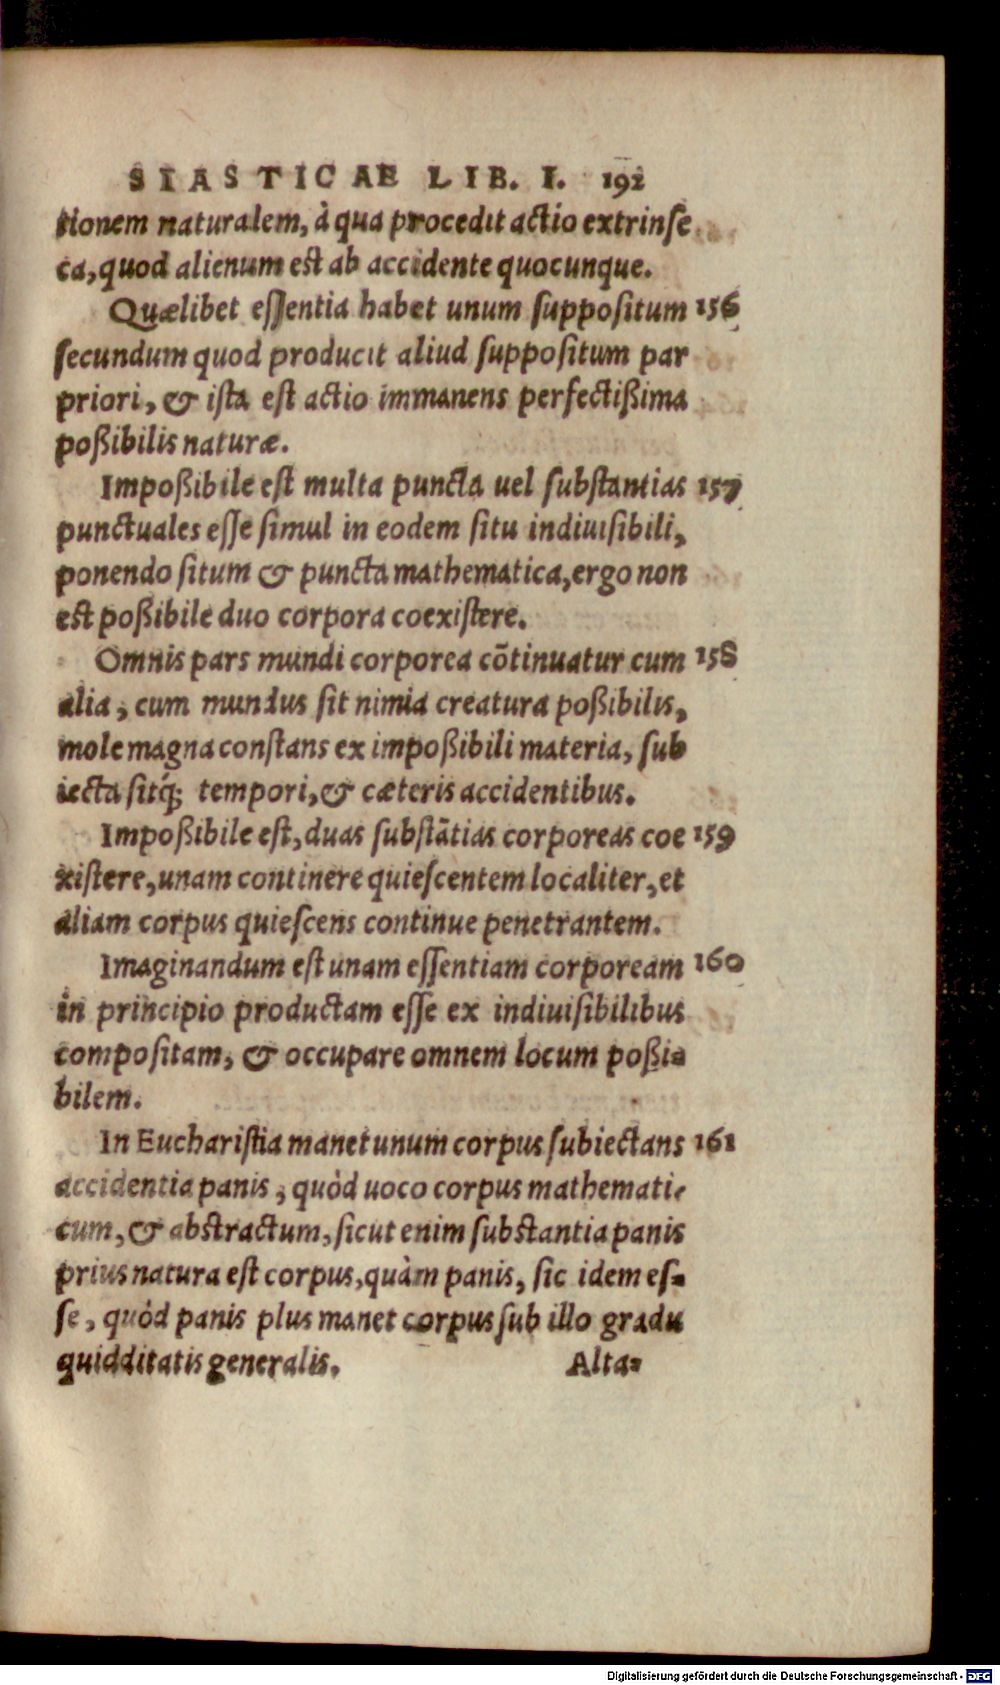 SIASTICAE LIB. I. 192
tionem naturalem, à qua procedit actio extrinſe
ca, quod alienum est ab accidente quocunque.
Quælibet eſſentia habet unum ſuppoſitum 156
ſecundum quod producit aliud ſuppoſitum par
priori, & iſta est actio immanens perfectißima
poßibilis naturæ.
Impoßibile est multa puncta uel ſubſtantias 157
punctuales eſſe ſimul in eodem ſitu indiuiſibili,
ponendo ſitum & puncta mathematica, ergo non
est poßibile duo corpora coexiſtere.
Omnis pars mundi corporea cõtinuatur cum 158
alia, cum mundus ſit nimia creatura poßibilis,
mole magna conſtans ex impoßibili materia, ſub
iecta ſitq́; tempori, & cæteris accidentibus.
Impoßibile eſt, duas ſubſtãtias corporeas coe 159
xiſtere, unam continere quieſcentem localiter, et
aliam corpus quieſcens continue penetrantem.
Imaginandum eſt unam eſſentiam corpoream 160
in principio productam eſſe ex indiuiſibilibus
compoſitam, & occupare omnem locum poßi-
bilem.
In Euchariſtia manet unum corpus ſubiectans 161
accidentia panis, quòd uoco corpus mathemati-
cum, & abſtractum, ſicut enim ſubſtantia panis
prius natura eſt corpus, quàm panis, ſic idem eſ-
ſe, quòd panis plus manet corpus ſub illo gradu
quidditatis generalis. Alta-
Digitalisierung gefördert durch die Deutsche Forschungsgemeinschaft - DFG